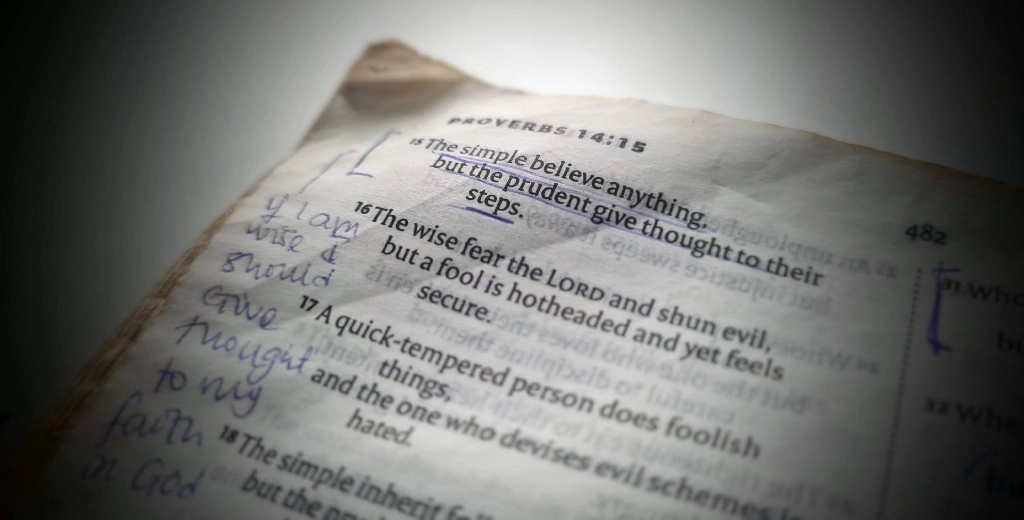 PROVERBS 14:15
482
15 The simple believe anything,
but the prudent give thought to their
steps.
16 The wise fear the LORD and shun evil,
but a fool is hotheaded and yet feels
secure.
17 A quick-tempered person does foolish
things,
and the one who devises evil schemes
hated.
18 The simple inherit
but the
if I am
wise &
should
Give
thought
to my
faith
in God
31 Who
32 Whe